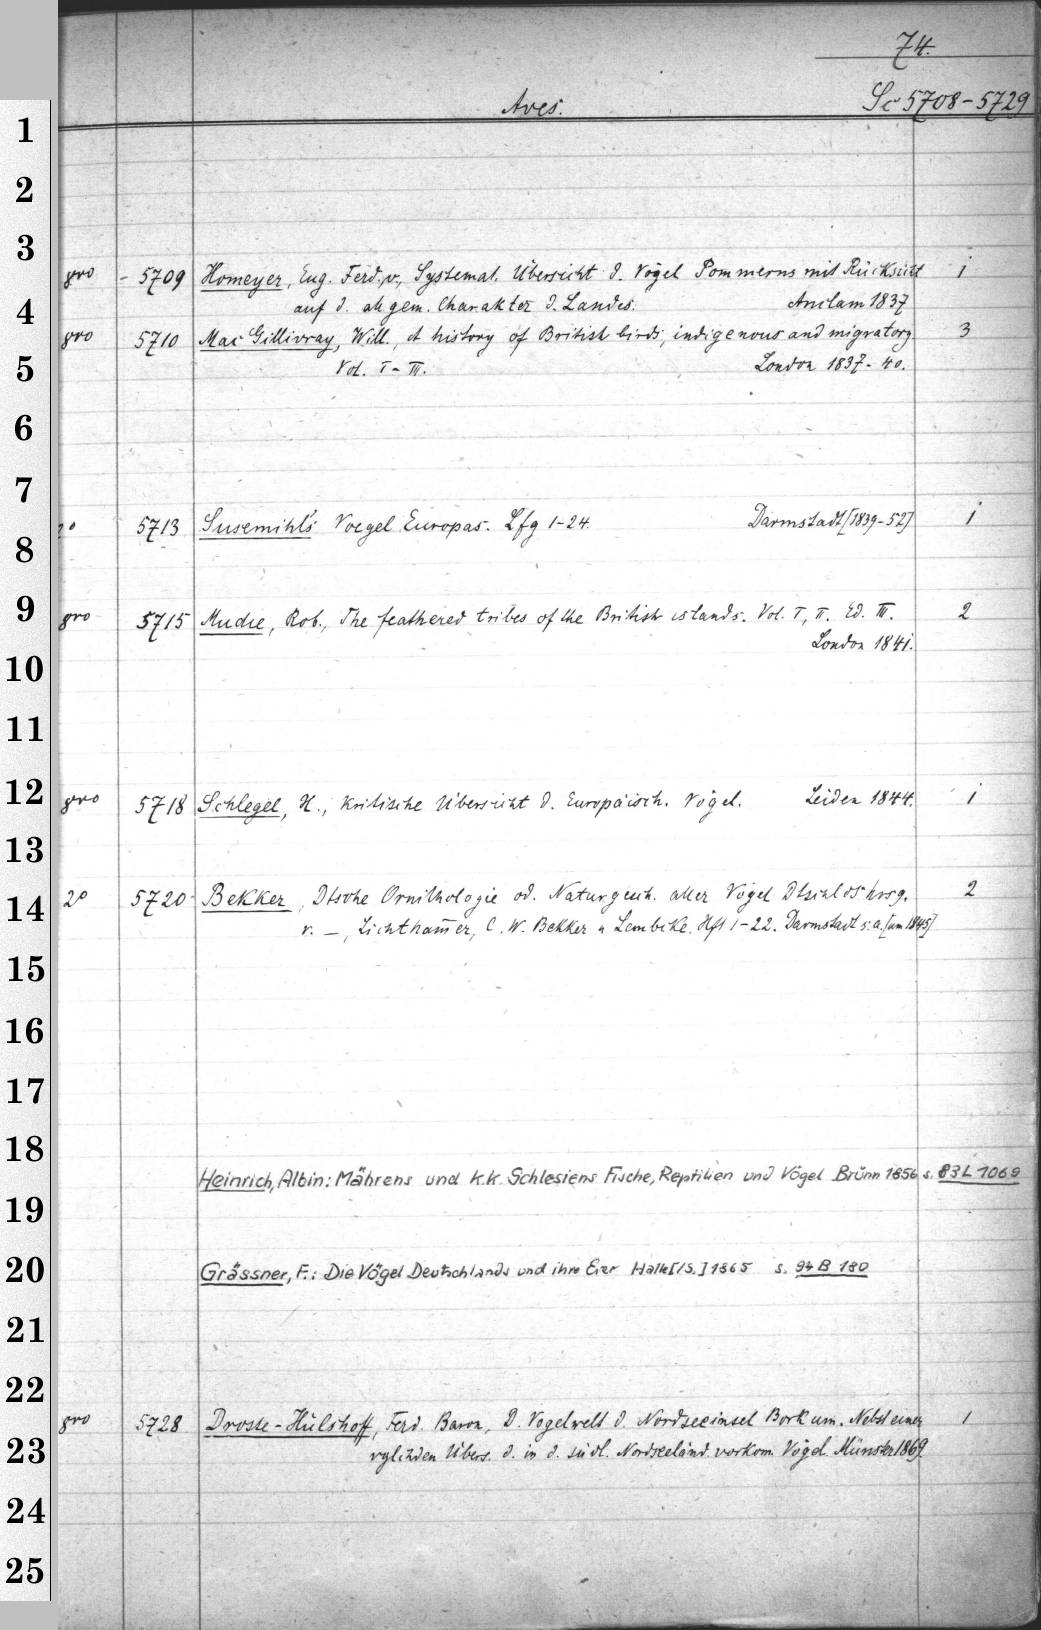 74.
Aves.
Sc 5708-5729
1
2
3
8vo - 5709 Homeyer, Eug. Ferd. v., Systemat. Übersicht d. Vögel Pommerns mit Rücksicht 1
4
auf d. allgem. Charakter d. Landes. Anclam 1837
8vo 5710 Mac Gillivray, Will., A history of British birds, indigenous and migratory. 3
5
Vol. I-III. London 1837-40.
6
7
2° 5713 Susemihl's Voegel Europas. Lfg 1-24 Darmstadt [1839-52] 1
8
9
8vo 5715 Mudie, Rob., The feathered tribes of the British islands. Vol. I, II. Ed. III. 2
London 1841.
10
11
12
8vo 5718 Schlegel, H., Kritische Übersicht d. Europäisch. Vögel. Leiden 1844. 1
13
14
2° 5720 Bekker, Dtsche Ornithologie od. Naturgesch. aller Vögel Dtschlds hrsg. 2
v. —, Lichtham̅er, C. W. Bekker u Lembcke. Hft 1-22. Darmstadt s. a. [um 1845]
15
16
17
18
Heinrich, Albin: Mährens und k.k. Schlesiens Fische, Reptilien und Vögel Brünn 1856 s. 83 L 1069
19
20
Grässner, F.: Die Vögel Deutschlands und ihre Eier Halle [/S.] 1865 s. 94 B 180
21
22
8vo 5728 Droste-Hülshoff, Ferd. Baron, D. Vogelwelt d. Nordseeinsel Borkum. Nebst einer 1
23
vglchden Übers. d. in d. südl. Nordseeländ. vorkom. Vögel. Münster 1869.
24
25